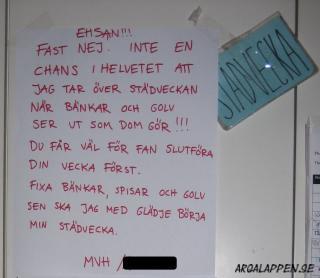 EHSAN!!!
FAST NEJ. INTE EN
CHANS I HELVETET ATT
JAG TAR ÖVER STÄDVECKAN
NÄR BÄNKAR OCH GOLV
SER UT SOM DOM GÖR!!!
DU FÅR VÄL FÖR FAN SLUTFÖRA
DIN VECKA FÖRST.
FIXA BÄNKAR, SPISAR OCH GOLV
SEN SKA JAG MED GLÄDJE BÖRJA
MIN STÄDVECKA.
MVH /
STÄDVECKA
ARGALAPPEN.SE